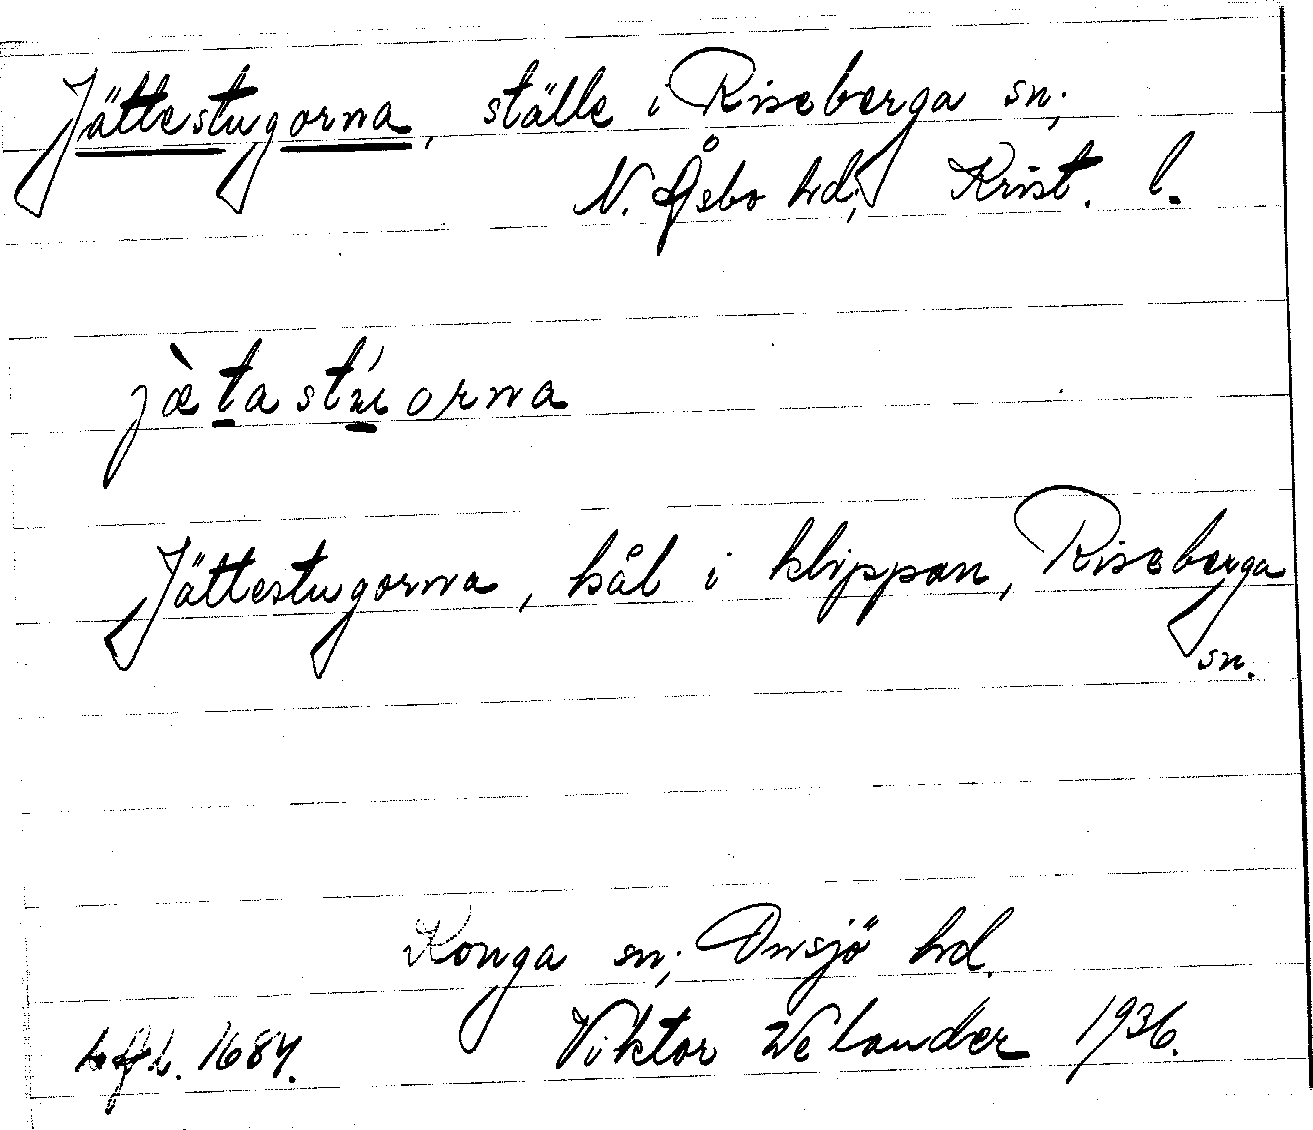 Jättestugorna, ställe i Riseberga sn;
N. Åsbo hd, Krist. l.
jætastuorna
Jättestugorna, hål i klippan, Riseberga
sn.
Konga sn; Onsjö hd.
1684. Viktor Welander 1936.